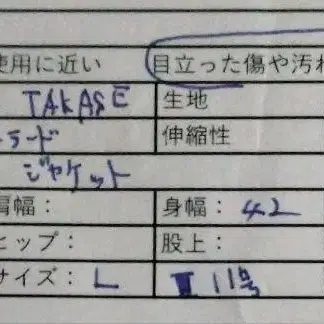 使用に近い 目立った傷や汚れ
TAKASE 生地
ラード 伸縮性
ジャケット
肩幅: 身幅: 42
ヒップ: 股上:
サイズ: L Ⅲ 11号